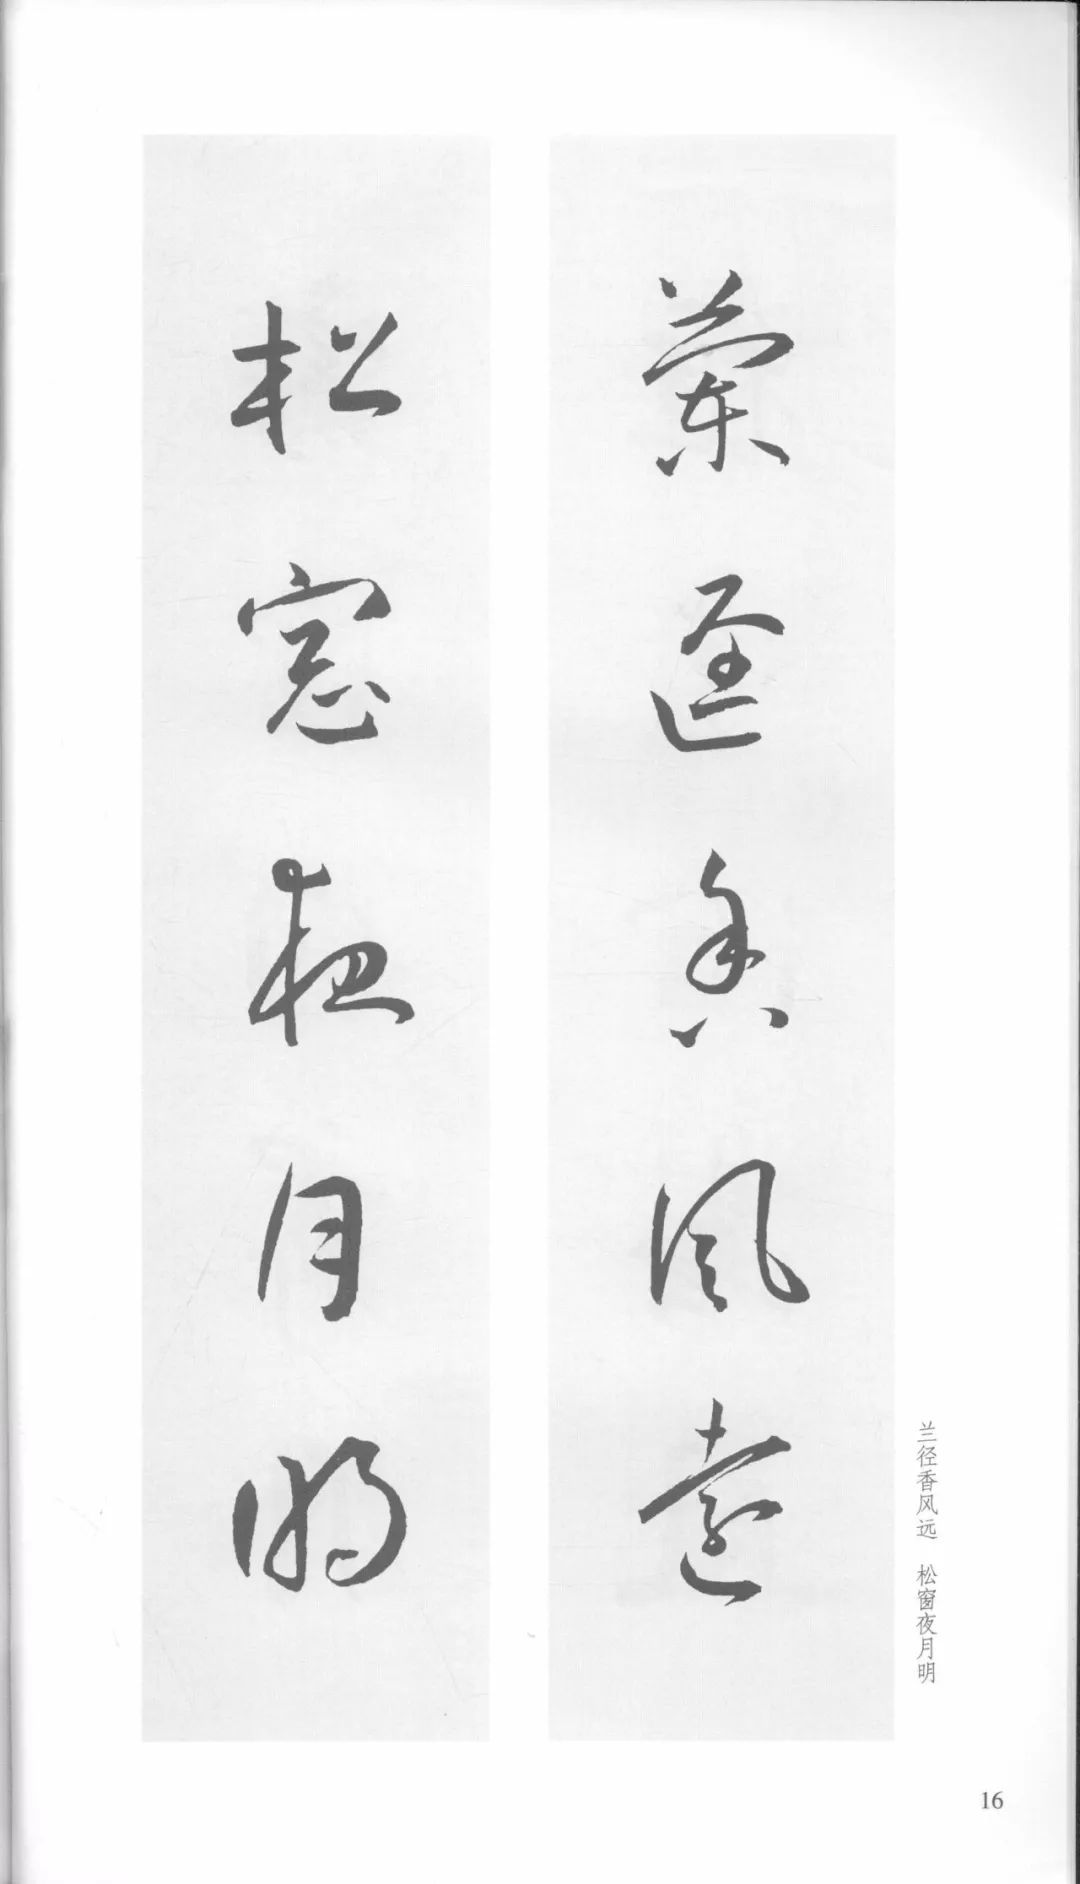 蘭迳香风遠
松窓夜月明
兰径香风远 松窗夜月明
16